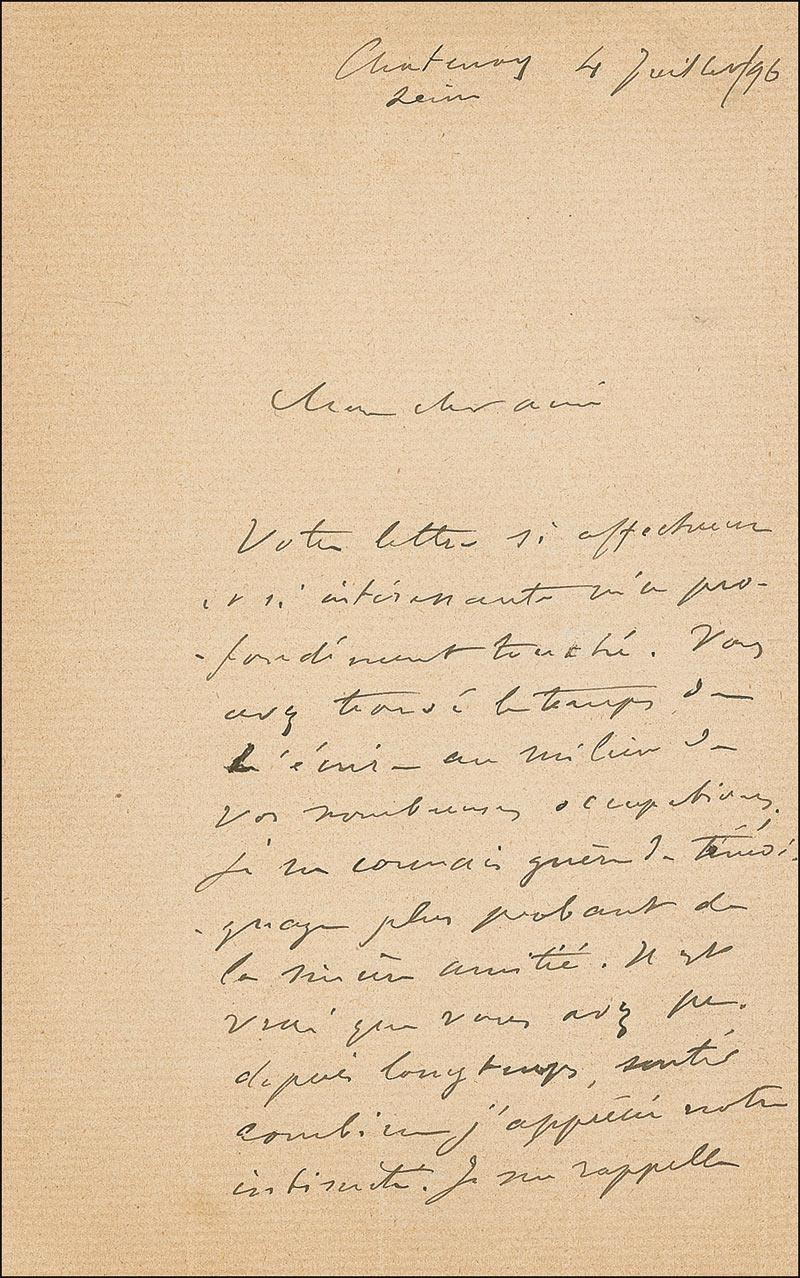 Chatenay 4 Juillet/96
Seine
Mon cher ami
Votre lettre si affectueuse
et si intéressante m'a pro-
-fondément touché. Vous
avez trouvé le temps de
l'écrire au milieu de
vos nombreuses occupations.
Je ne connais guère de témoi-
-gnage plus probant de
la sincère amitié. Il est
vrai que vous avez pu,
depuis longtemps, sentir
combien j'apprécie notre
intimité. Je me rappelle